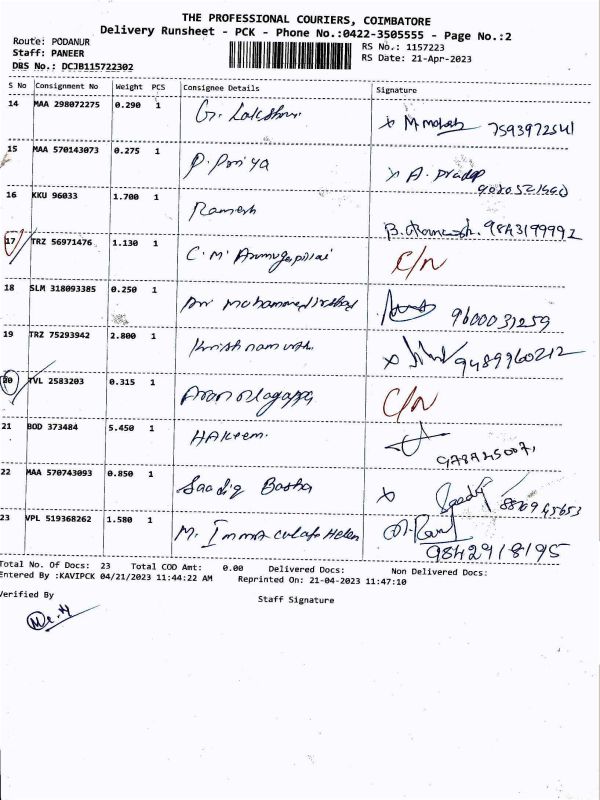 THE PROFESSIONAL COURIERS, COIMBATORE
Delivery Runsheet - PCK - Phone No.:0422-3505555 - Page No.:2
Route: PODANUR
RS No.: 1157223
Staff: PANEER
RS Date: 21-Apr-2023
DRS No.: DCJB115722302
S No Consignment No Weight PCS Consignee Details Signature
14 MAA 298072275 0.290 1 G. Lakshmi x M. 7593972541
15 MAA 570143073 0.275 1 P. Priya x A. Pradep
16 KKU 96033 1.700 1 Ramesh B.
17 TRZ 56971476 1.130 1 C. M. C/N
18 SLM 318093385 0.250 1 9600031259
19 TRZ 75293942 2.800 1 x 9489960212
20 TVL 2583203 0.315 1 C/N
21 BOD 373484 5.450 1 HAKeem.
22 MAA 570743093 0.850 1 Saadiq Basha x
23 VPL 519368262 1.580 1 M. Immaculate Helen
9842918195
Total No. Of Docs: 23 Total COD Amt: 0.00 Delivered Docs: Non Delivered Docs:
Entered By :KAVIPCK 04/21/2023 11:44:22 AM Reprinted On: 21-04-2023 11:47:10
Verified By Staff Signature